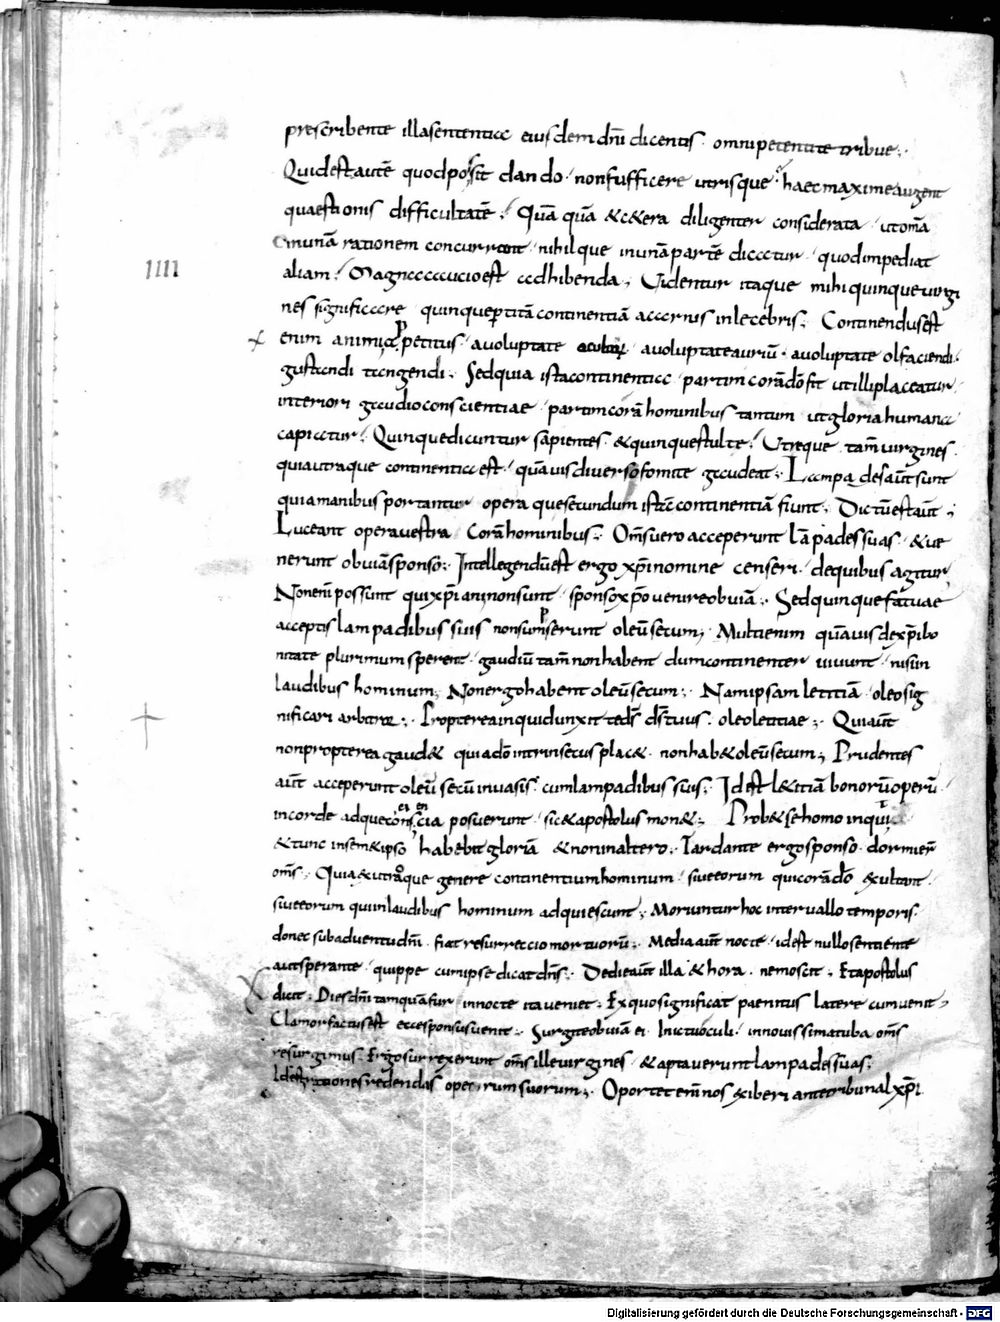 prescribente illa sententia eiusdem dñi dicentis. omni petenti te tribue;.
Quid est autē quod possit dando. non sufficere utrisque. haec maxime augent
quaestionis difficultatē; Quā quā & cetera diligenter considerata. ut omīa
in unā rationem concurrant. nihilque in unā partē dicatur. quod impediat
IIII
aliam; Magna cautio est adhibenda; Videntur itaque mihi quinque virgi
nes significare quinquepertitā continentiā a carnis inlecebris;. Continendus est
enim animi appetitus. a voluptate oculorū a voluptate auriū. a voluptate olfaciendi.
gustandi tangendi;. Sed quia ista continentia. partim corā dō fit ut illi placeatur.
interiori gaudio conscientiae. partim corā hominibus tantum ut gloria humana
capiatur; Quinque dicuntur sapientes. & quinque stulte; Utreque tam̄ virgines.
quia utraque continentia est. quāuis diverso fomite gaudeat;. Lampades aūt sunt
quia manibus portantur opera que secundum istā continentiā fiunt;. Dictū est aūt;
Luceant opera vestra corā hominibus;. Om̄s vero acceperunt lāpades suas. & ve
nerunt obviā sponso;. Intellegendū est ergo xp̄i nomine censeri. de quibus agitur;
Non enī possunt qui xp̄iani non sunt. sponso xp̄o venire obviā;. Sed quinque fatuae
acceptis lampadibus suis non sumpserunt oleū secum; Multi enim quāuis de xp̄i bo
nitate plurimum sperent. gaudiū tam̄ non habent dum continenter vivunt. nisi in
laudibus hominum; Non ergo habent oleū secum;. Nam ipsam letitiā. oleo sig
nificari arbitror;. Propterea inquid unxit te dš dš tuus. oleo letitiae;. Qui aūt
non propterea gaud& quia dō intrinsecus plac&. non hab& oleū secum; Prudentes
aūt acceperunt oleū secū in vasis. cum lampadibus suis;. Id est l&itiā bonorū operū
in corde adque conscientia posuerunt. sic & apostolus mon&;. Prob& se homo inquit
& tunc in sem&ipso habebit gloriā & non in altero;. Tardante ergo sponso. dormier̄
om̄s;. Quia & utroque genere continentium hominum. sive eorum qui corā dō exultant.
sive eorum qui in laudibus hominum adquiescunt;. Moriuntur hoc intervallo temporis.
donec sub adventu dñi. fiat resurreccio mortuorū;. Media aūt nocte. id est nullo sentiente
aut sperante. quippe cum ipse dicat dñs;. De die aūt illa & hora. nemo scit;. Et apostolus
dicit;. Dies dñi tamquā fur in nocte ita veniet;. Ex quo significat paenitus latere cum venit,
Clamor factus est ecce sponsus venit;. Surgite obviā ei In ictu oculi. in novissima tuba om̄s
resurgimus;. Ergo surrexerunt om̄s ille virgines. & aptaverunt lampades suas;
Id est rationes redendas operum suorum;. Oportet enī nos exiberi ante tribunal xp̄i
Digitalisierung gefördert durch die Deutsche Forschungsgemeinschaft - DFG